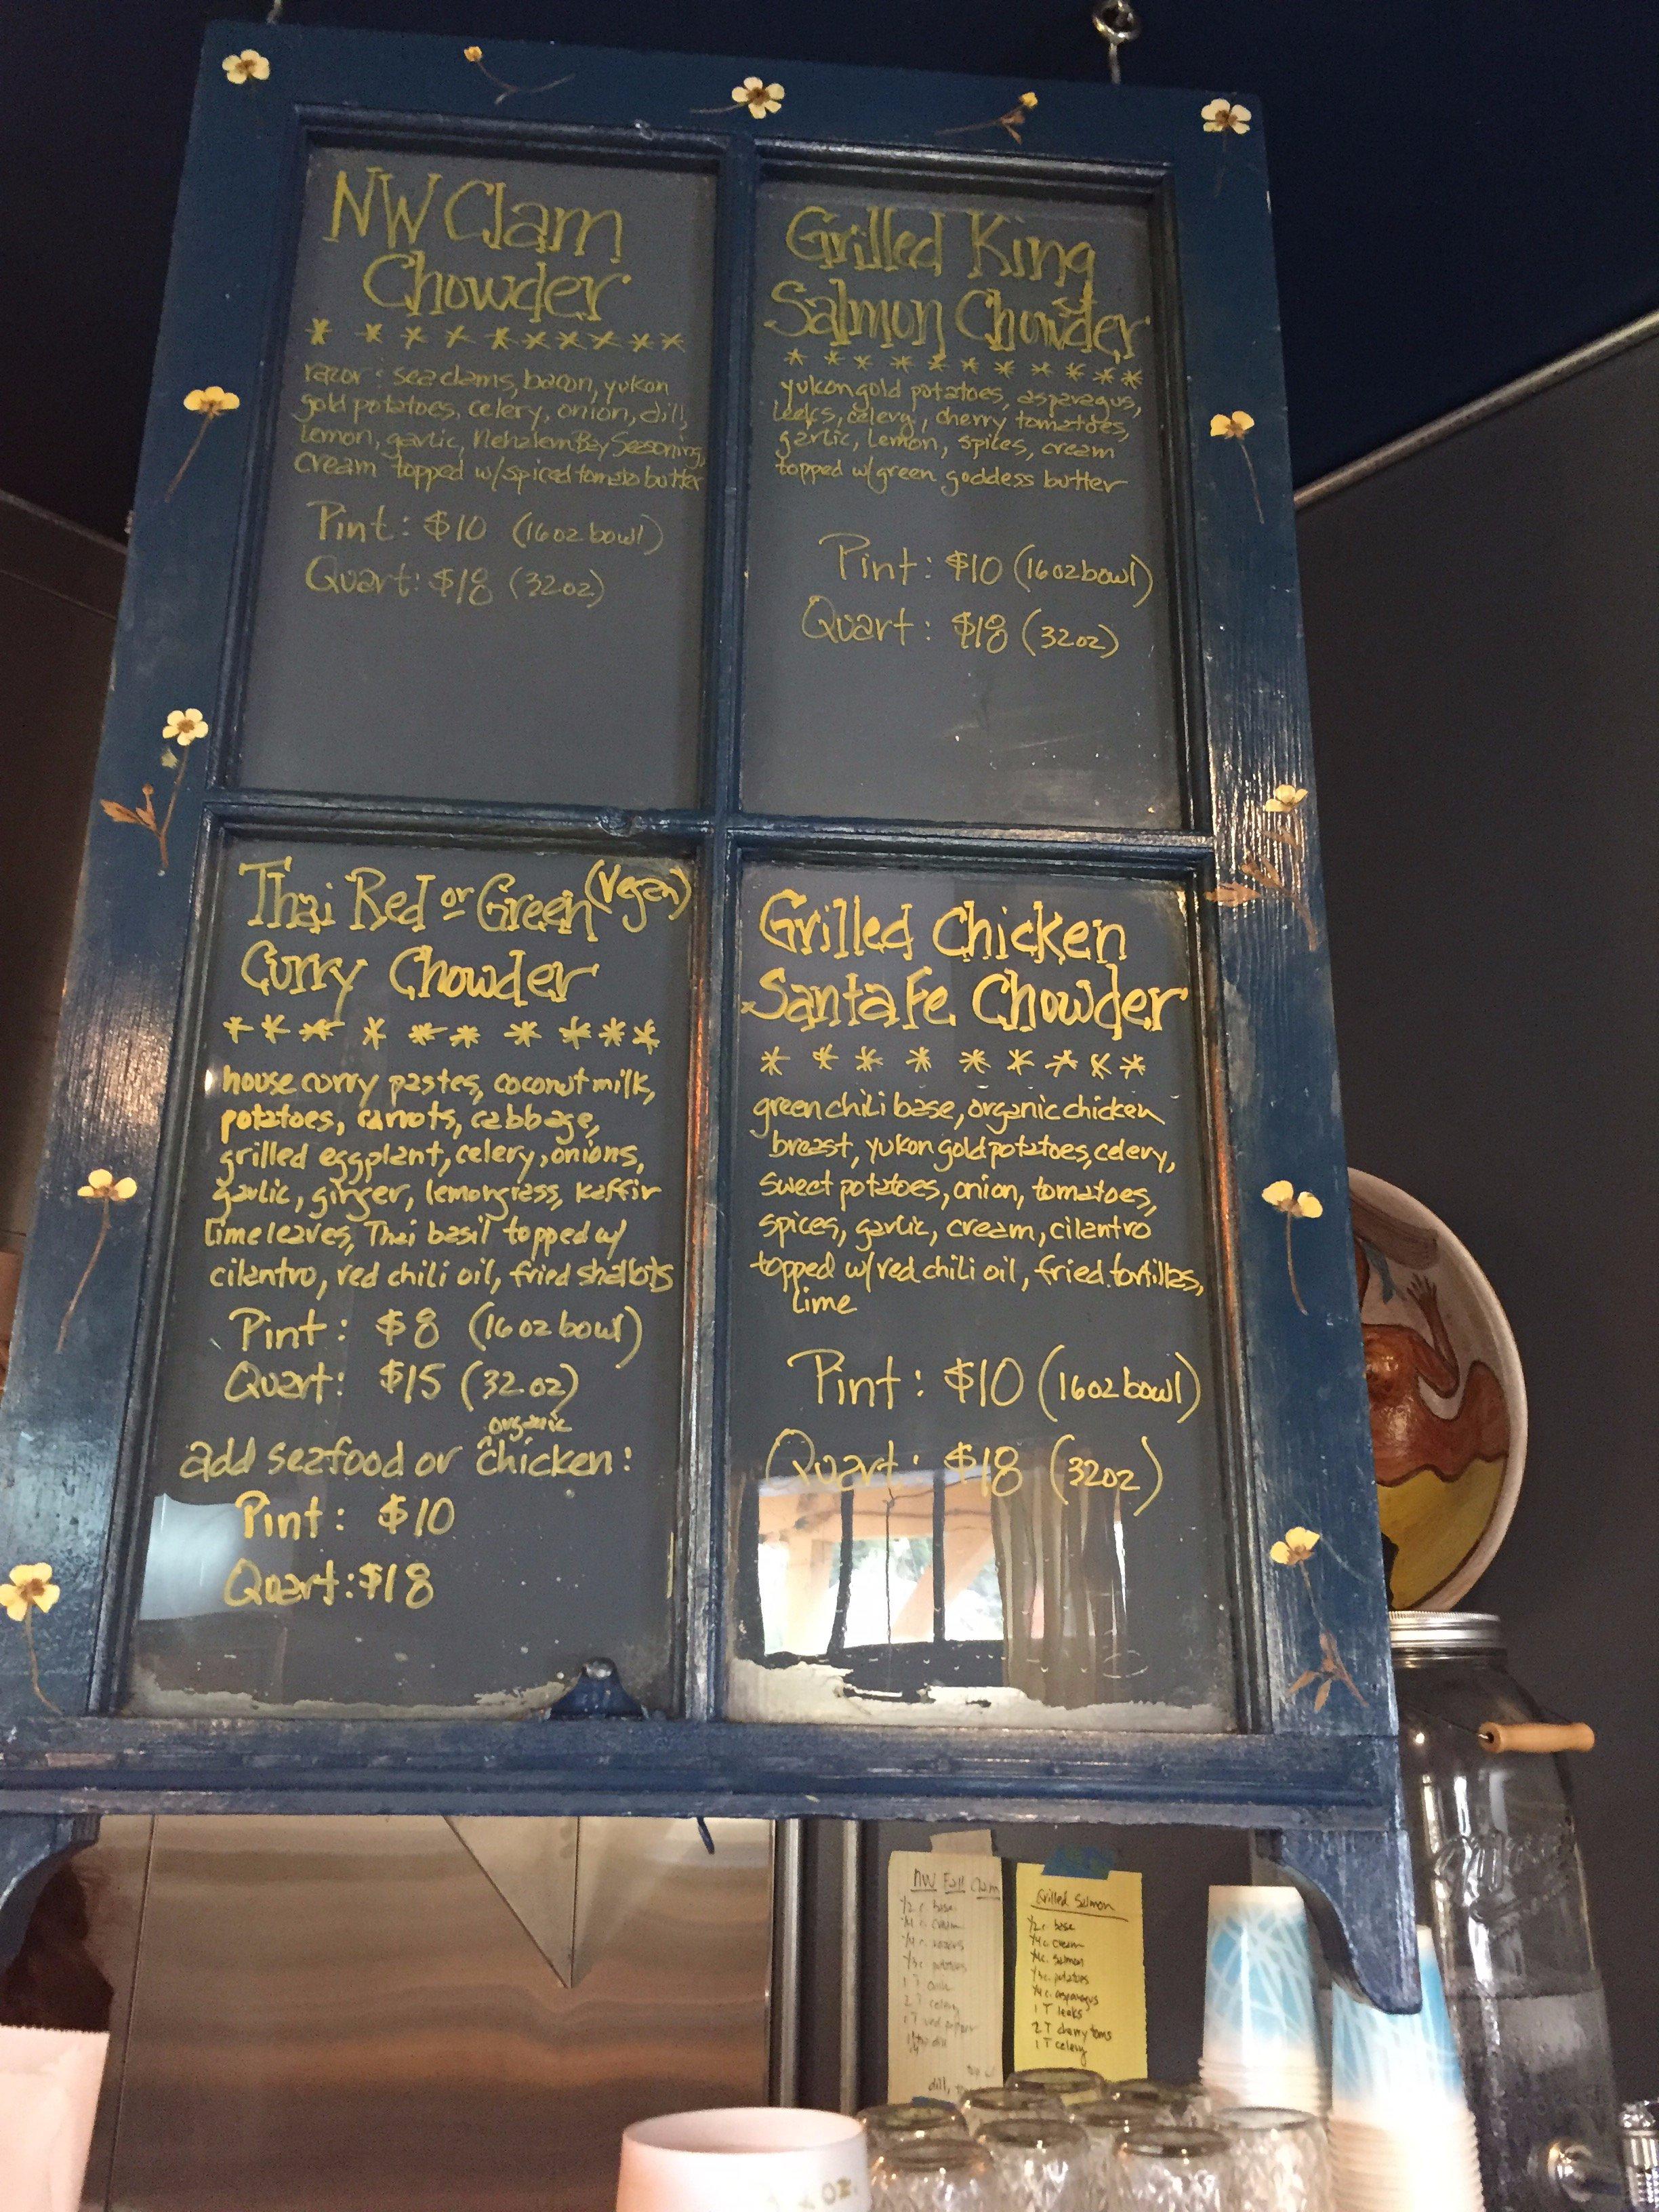 NW Clam
Chowder
* * * * * * * * * *
razor : sea clams, bacon, yukon
gold potatoes, celery, onion, dill,
lemon, garlic, Nehalem Bay Seasoning,
cream topped w/spiced tomato butter
Pint: $10 (16oz bowl)
Quart: $18 (32oz)
Grilled King
Salmon Chowder
* * * * * * * * * *
yukon gold potatoes, asparagus,
leeks, celery, cherry tomatoes,
garlic, lemon, spices, cream
topped w/green goddess butter
Pint: $10 (16oz bowl)
Quart: $18 (32oz)
Thai Red or Green (vegan)
Curry Chowder
* * * * * * * * * *
house curry pastes, coconut milk,
potatoes, carrots, cabbage,
grilled eggplant, celery, onions,
garlic, ginger, lemongrass, kaffir
lime leaves, Thai basil topped w/
cilantro, red chili oil, fried shallots
Pint: $8 (16oz bowl)
Quart: $15 (32oz)
organic
add seafood or chicken:
Pint: $10
Quart: $18
Grilled Chicken
Santa Fe Chowder
* * * * * * * * *
green chili base, organic chicken
breast, yukon gold potatoes, celery,
sweet potatoes, onion, tomatoes,
spices, garlic, cream, cilantro
topped w/red chili oil, fried tortillas,
lime
Pint: $10 (16oz bowl)
Quart: $18 (32oz)
NW Fall Clam
1/2 c. base
1/4 c. cream
1/4 c. razors
1/3 c. potatoes
1 T
2 T celery
1 T red pepper
dill,
Grilled Salmon
1/2 c. base
1/4 c. cream
1/4 c. salmon
1/3 c. potatoes
1/4 c. asparagus
1 T leeks
2 T cherry toms
1 T celery